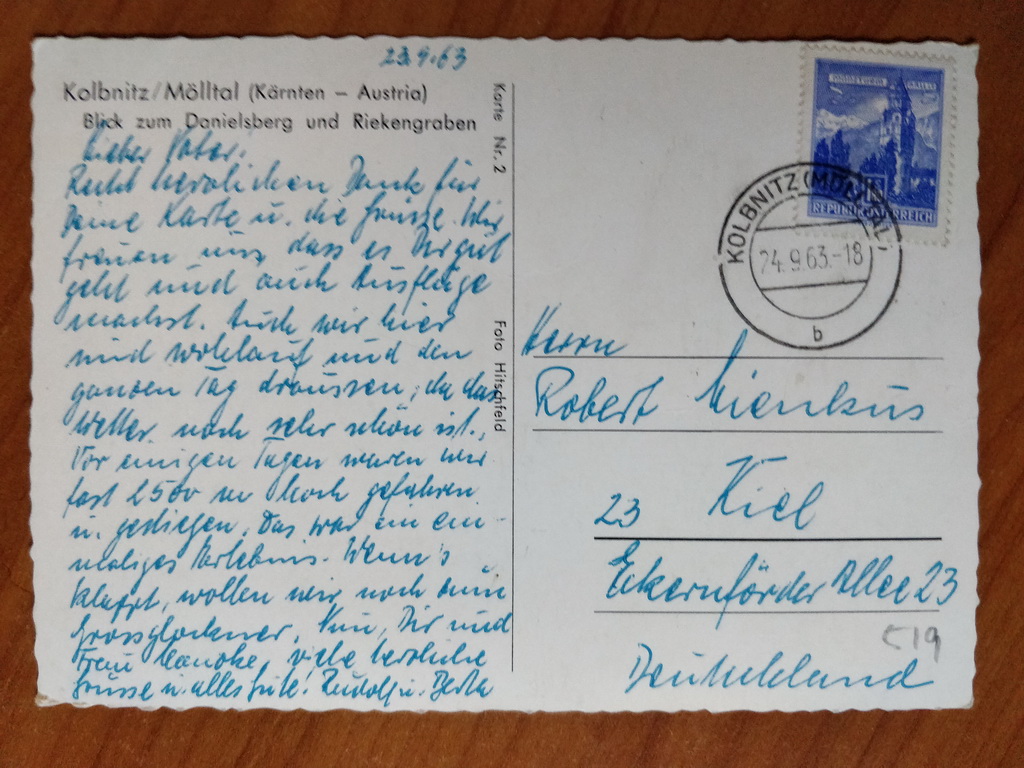 23.9.63
Kolbnitz/Mölltal (Kärnten – Austria)
Blick zum Danielsberg und Riekengraben
Lieber Vater!
Recht herzlichen Dank für
Deine Karte u. die Grüsse. Wir
freuen uns, dass es Dir gut
geht und auch Ausflüge
machst. Auch wir hier
sind wohlauf und den
ganzen Tag draussen, da das
Wetter noch sehr schön ist.
Vor einigen Tagen waren wir
fast 2500 m hoch gefahren
u. gestiegen. Das war ein ein-
maliges Erlebnis. Wenn's
klappt, wollen wir noch zum
Grossglockner. Nun, Dir und
Frau viele herzliche
Grüsse u. alles Gute! Rudolf u. Berta
Karte Nr. 2
Foto Hitschfeld
REPUBLIK ÖSTERREICH
KOLBNITZ (MÖLLTAL)
24.9.63.-18
b
Herrn
Robert
23 Kiel
Eckernförder Allee 23
Deutschland